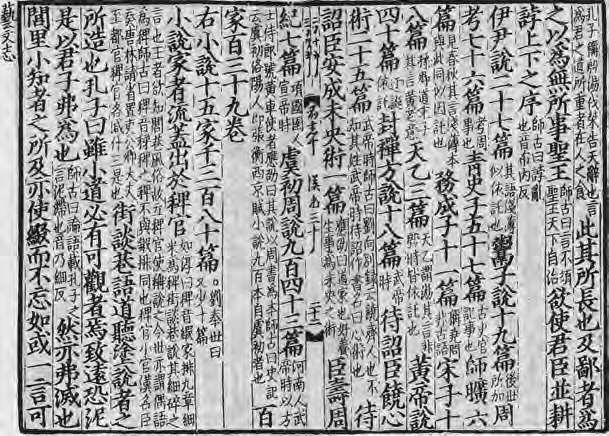 孔子稱殷湯伐桀告天辭也言為君之道所重者在人之食此其所長也及鄙者為
之以為無所事聖王師古曰言不須聖王天下自治欲使君臣並耕
誖上下之序師古曰誖亂也音布內反
伊尹說二十七篇其語淺薄似依託也鬻子說十九篇後世所加周
考七十六篇考周事也青史子五十七篇古史官記事也師曠六
篇見春秋其言淺薄本與此同似因託也務成子十一篇稱堯問非古語宋子十
八篇孫卿道宋子其言黃老意天乙三篇天乙謂湯其言非殷時皆依託也黃帝說
四十篇迂誕依託封禪方說十八篇武帝時待詔臣饒心
術二十五篇武帝時師古曰劉向別錄云饒齊人也不知其姓武帝時待詔作書名曰心術也待
詔臣安成未央術一篇應劭曰道家也好養生事為未央之術臣壽周
漢三十
二十一
紀七篇項國圉人宣帝時虞初周說九百四十三篇河南人武帝時以方士侍郎號黃車使者應劭曰其說以周書為本師古曰史記云虞初洛陽人即張衡西京賦小說九百本自虞初者也百
家百三十九卷
右小說十五家千三百八十篇劉奉世曰又少十篇
小說家者流蓋出於稗官如淳曰稗音鍛家排九章細米為稗街談巷說其細碎之言也王者欲知閭巷風俗故立稗官使稱說之今世亦謂偶語為稗師古曰稗音稊稗之稗不與鍛排同也稗官小官漢名臣奏唐林請省置吏公卿大夫至都官稗官各減什三是也街談巷語道聽塗說者之
所造也孔子曰雖小道必有可觀者焉致遠恐泥
是以君子弗為也師古曰論語載孔子之言泥滯也音乃細反然亦弗滅也
閭里小知者之所及亦使綴而不忘如或一言可
藝文志